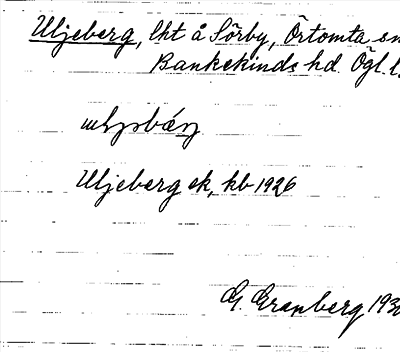 Uljeberg, lht å Sörby, Örtomta sn
Bankekinds hd. Ögl. l.
Uljeberg ek, kb 1926
G. Granberg 193